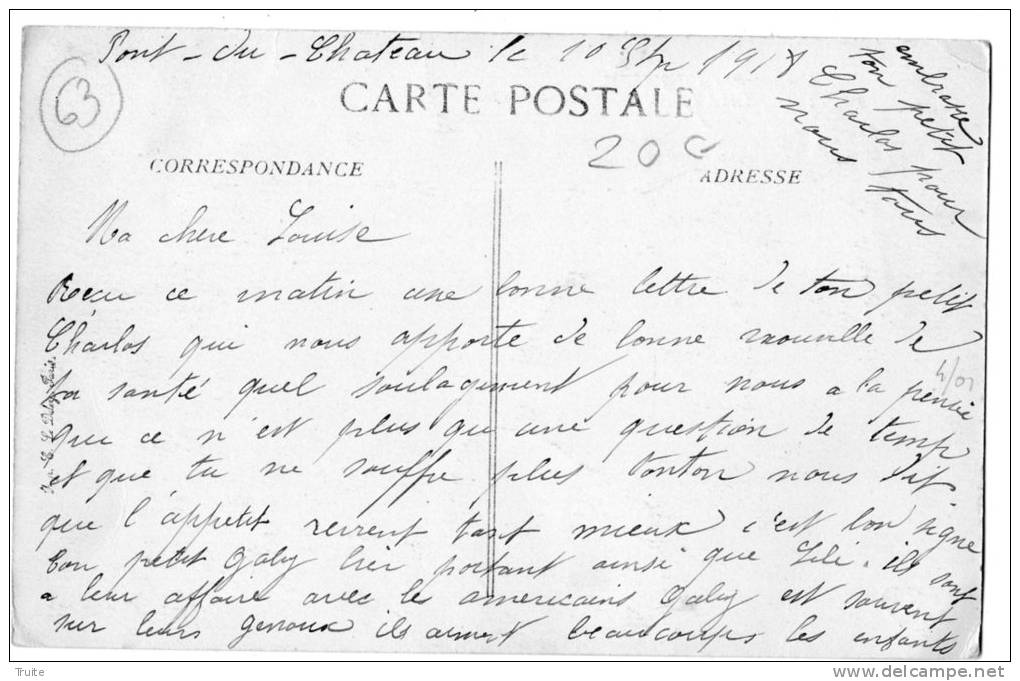 Pont-du-Chateau le 10 Sbre 1918
63
CARTE POSTALE
20 c
CORRESPONDANCE
ADRESSE
embrasse
ton petit
Charlos pour
nous tous
Ma chere Louise
Recu ce matin une bonne lettre de ton petit
Charlos qui nous apporte de bonne nouvelle de
ta santé quel soulagement pour nous a la pensée
que ce n'est plus qu une question de temp
et que tu ne souffre plus tonton nous dit
que l'appetit revient tant mieux c'est bon signe
ton petit Gaby bien portant ainsi que Lili. ils sont
a leur affaire avec les americains Gaby est souvent
sur leurs genoux ils aiment beaucoups les enfants
Truite
www.delcampe.net